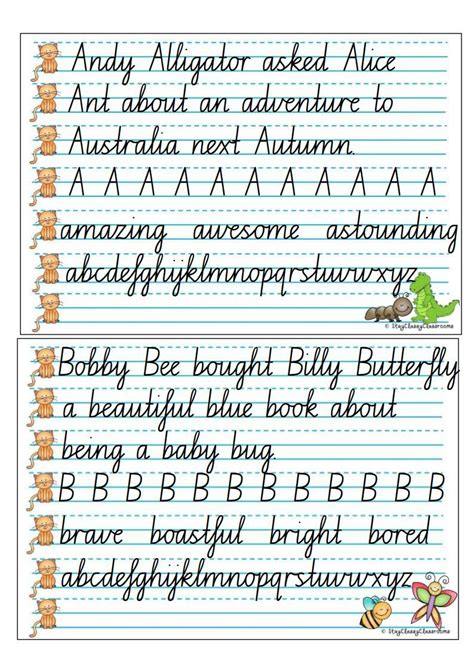 Andy Alligator asked Alice
Ant about an adventure to
Australia next Autumn.
A A A A A A A A A A A
amazing awesome astounding
abcdefghijklmnopqrstuvwxyz
© StayClassyClassrooms
Bobby Bee bought Billy Butterfly
a beautiful blue book about
being a baby bug.
B B B B B B B B B B B B
brave boastful bright bored
abcdefghijklmnopqrstuvwxyz
© StayClassyClassrooms